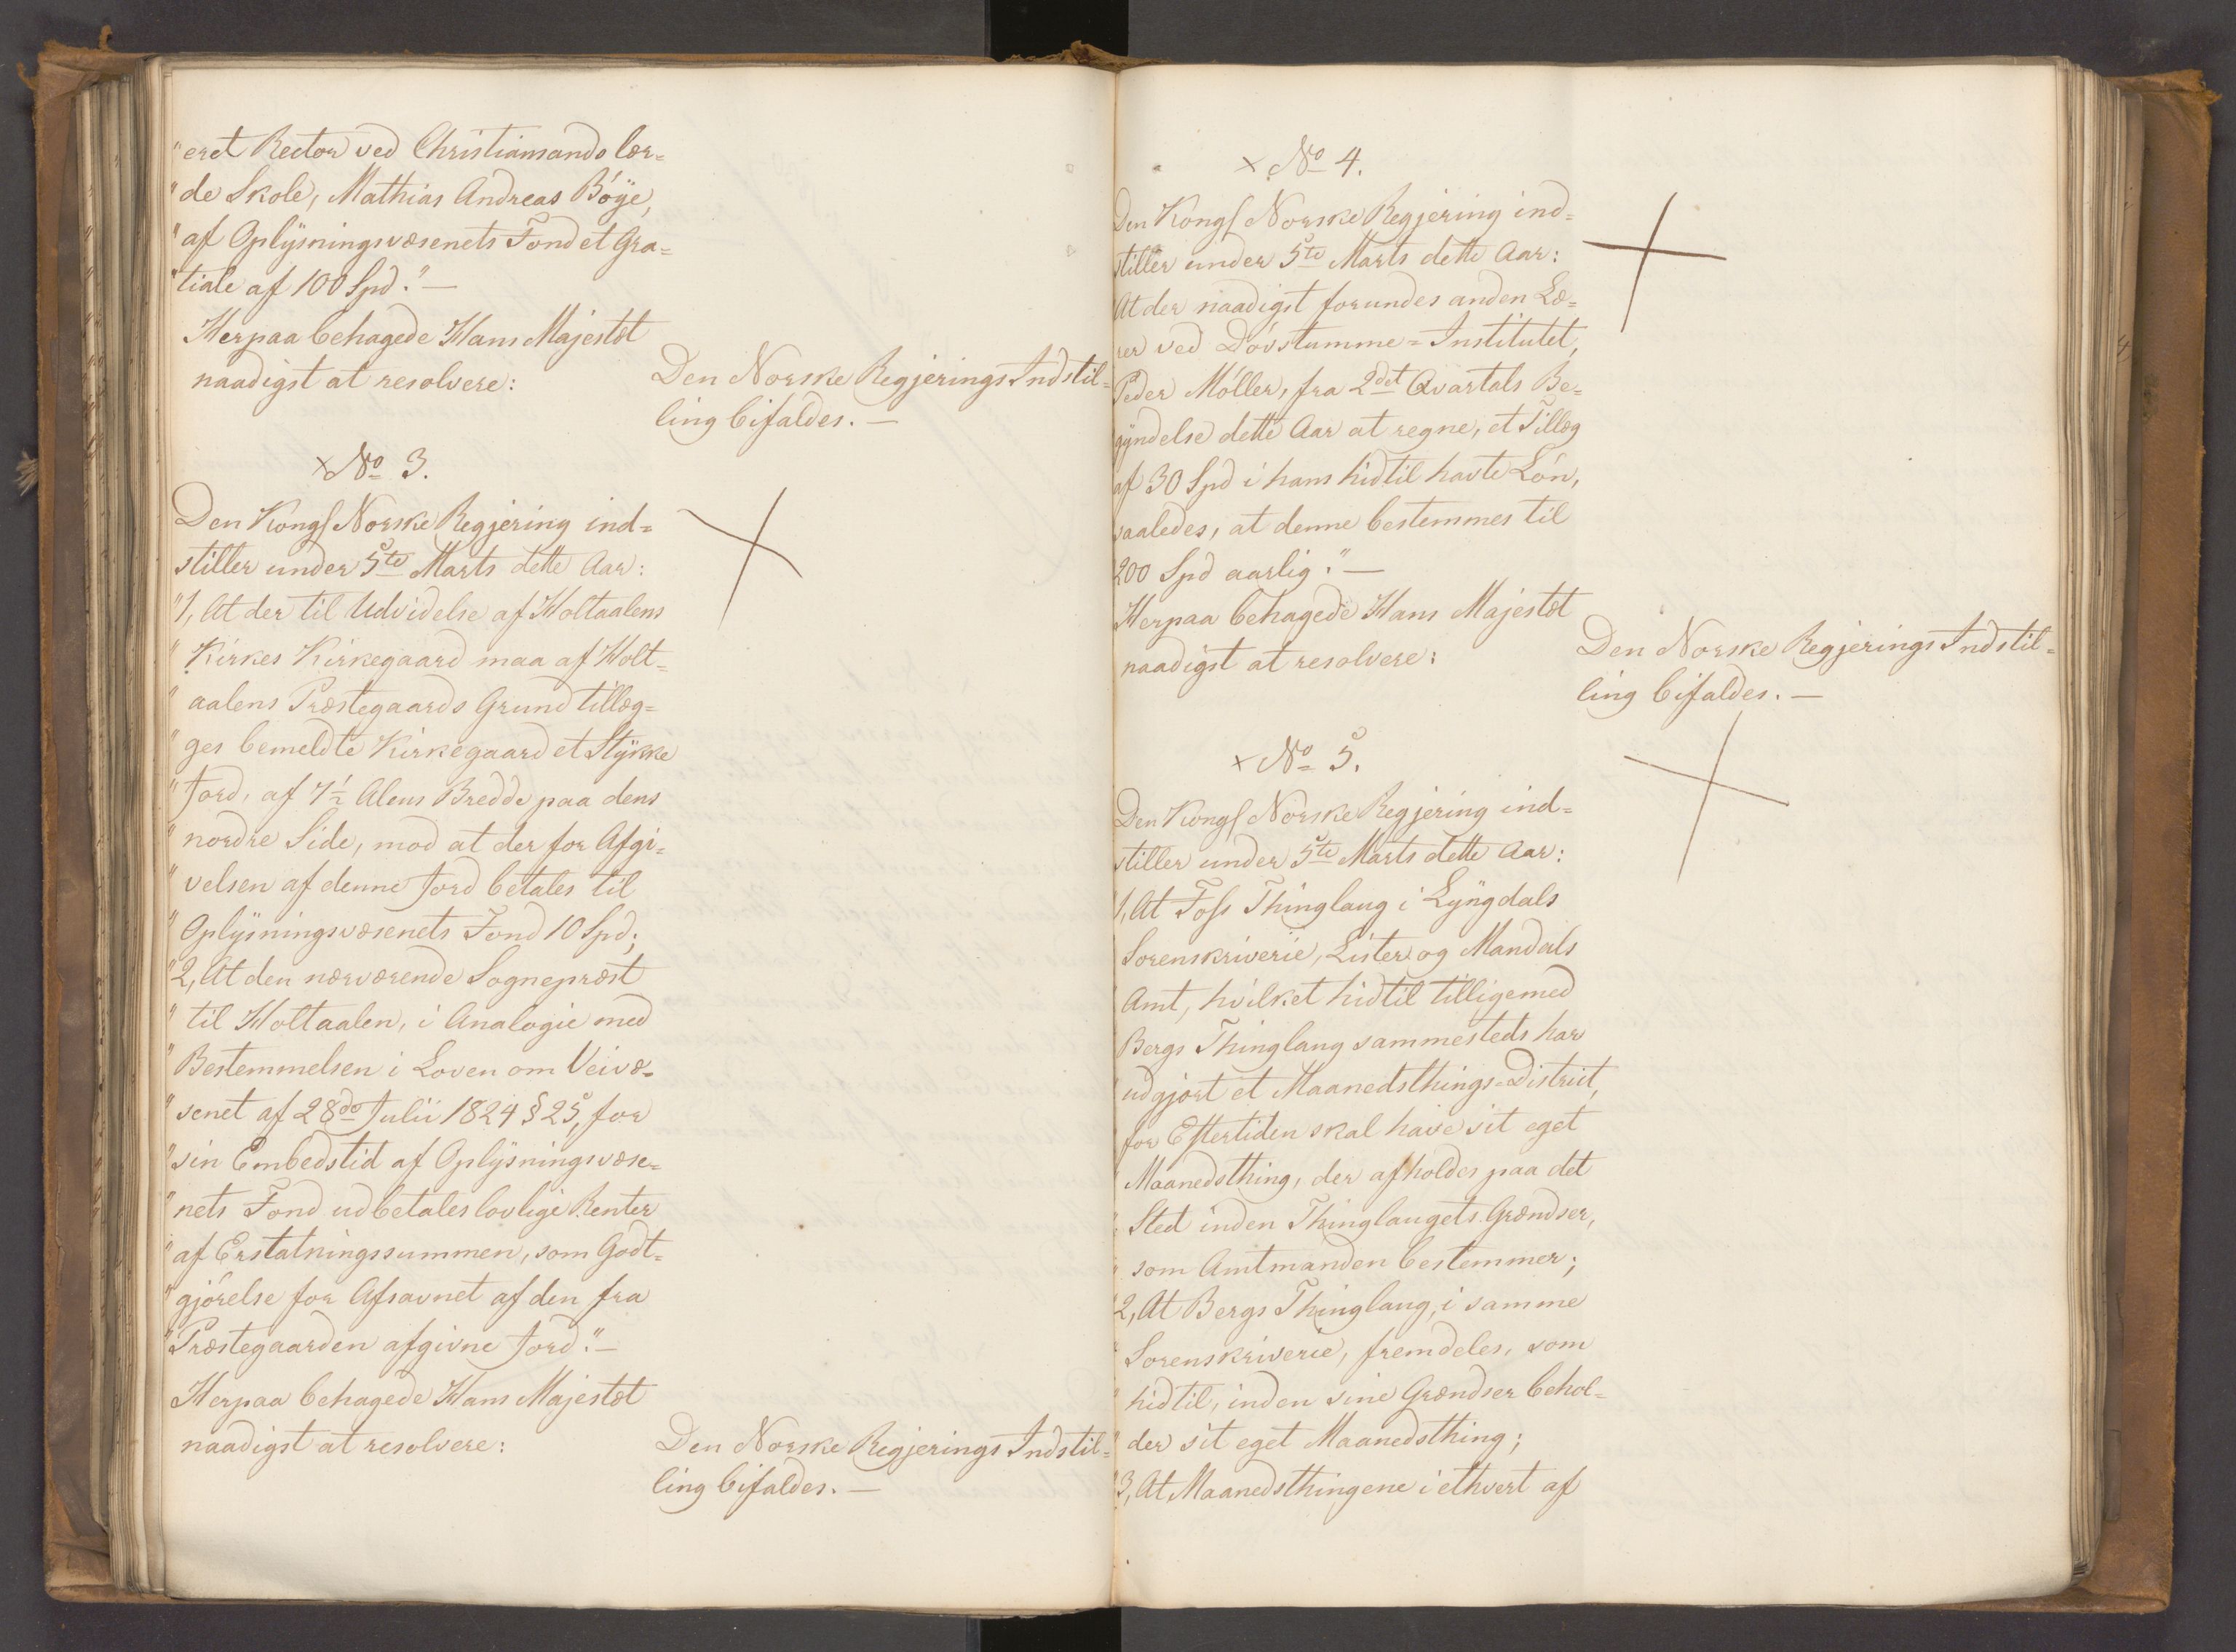 "eret Rector ved Christiansands lær=
"de Skole, Mathias Andreas Bøÿe,
"af Oplÿsningsvæsenets Fond et Gra=
"tiale af 100 Spd." —
Herpaa behagede Hans Majestæt
naadigst at resolvere:
Den Norske Regjerings Indstil=
ling bifaldes. —
× No 3.
Den Kongl Norske Regjering ind=
stiller under 5te Marts dette Aar:
"1, At der til Udvidelse af Holtaalens
" Kirkes Kirkegaard maa af Holt=
" aalens Præstegaards Grund tillæg=
" ges bemeldte Kirkegaard et Stÿkke
" Jord, af 7½ Alens Bredde paa dens
" nordre Side, mod at der for Afgi=
" velsen af denne Jord betales til
" Oplÿsningsvæsenets Fond 10 Spd;
"2, At den nærværende Sognepræst
" til Holtaalen, i Analogie med
" Bestemmelsen i Loven om Veivæ=
" senet af 28de Julii 1824 § 25, for
" sin Embedstid af Oplÿsningsvæse=
" nets Fond udbetales lovlige Renter
" af Erstatningssummen, som Godt=
" gjørelse for Afsavnet af den fra
" Præstegaarden afgivne Jord." —
Herpaa behagede Hans Majestæt
naadigst at resolvere:
Den Norske Regjerings Indstil=
ling bifaldes. —
× No 4.
Den Kongl Norske Regjering ind=
stiller under 5te Marts dette Aar:
At der naadigst forundes anden Læ=
rer ved Døvstumme=Institutet,
Peder Møller, fra 2det Qvartals Be=
gÿndelse dette Aar at regne, et Tillæg
af 30 Spd i hans hidtil havte Løn,
saaledes, at denne bestemmes til
200 Spd aarlig." —
Herpaa behagede Hans Majestæt
naadigst at resolvere:
Den Norske Regjerings Indstil=
ling bifaldes. —
× No 5.
Den Kongl Norske Regjering ind=
stiller under 5te Marts dette Aar:
1, At Foss Thinglaug i Lÿngdals
Sorenskriverie, Lister og Mandals
Amt, hvilket hidtil tilligemed
Bergs Thinglaug sammesteds har
udgjort et Maanedsthings-District,
for Eftertiden skal have sit eget
Maanedsthing, der afholdes paa det
" Sted inden Thinglaugets Grændser,
" som Amtmanden bestemmer;
"2, At Bergs Thinglaug, i samme
" Sorenskriverie, fremdeles, som
" hidtil, inden sine Grændser behol=
" der sit eget Maanedsthing;
"3, At Maanedsthingene i ethvert af